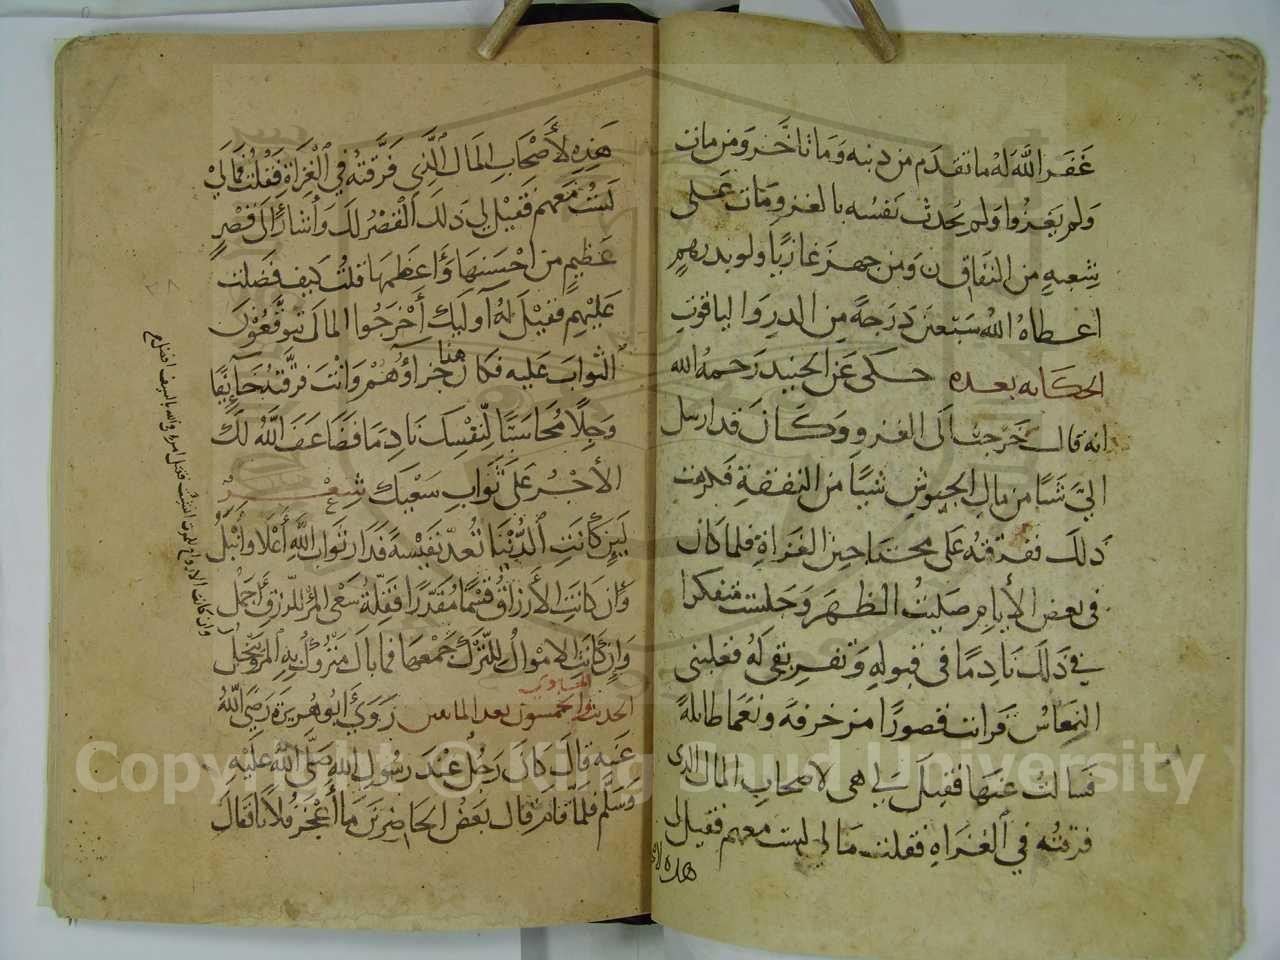 غفر الله له ما تقدم من ذنبه وما تأخر ومن مات
ولم يغزوا ولم يحدث نفسه بالغزو مات على
شعبه من النفاق ومن جهز غازيا ولو بدرهم
اعطاه الله سبعين درجة من الدر والياقوت
الحكايه بعده حكى عن الجنيد رحمه الله
انه قال خرجت الى الغزو وكان قد ارسل
الي شيا من مال الجيوش شيا من النفقة فكرهت
ذلك ففرقته على محتاجين الغزاة فلما كان
فى بعض الأيام صليت الظهر وجلست متفكرا
في ذلك نادما فى قبوله وتفريقى له فغلبنى
النعاس فرات قصورا مزخرفة ونعما طائلة
فسالت عنها فقيل لي هى لاصحاب المال الذى
فرقته في الغزاه فقلت مالي لست معهم فقيل لى
هذه لا
هذه لأصحاب المال الذي فرقته في الغزاة فقلت فمالي
لست معهم فقيل لي ذلك القصر لك وأشار إلى قصر
عظيم من احسنها وأعظمها قلت كيف فضلت
عليهم فقيل له اوليك أخرجوا المال يتوقعون
الثواب عليه فكان هذا جزاؤهم وانت فرقته خايفا
وجلا محاسبا لنفسك نادما فضاعف الله لك
الأجر على ثواب سعيك شعر
لين كانت الدنيا تعد نفيسة فدار ثواب الله أعلا وأنبل
وان كانت الأرزاق قسما مقدرا فقلة سعى المرء للرزق أجمل
وان كانت الاموال للترك جمعها فما بال متروك به المرء يبخل
الحديث الحادي والخمسون بعد المائتين روي أبو هريرة رضي الله
عنه قال كان رجل عند رسول الله صلى الله عليه
وسلم فلما قام قال بعض الحاضرين ما أعجز فلانا فقال
وان كانت الارواح للموت انشيت فقتل امرء والله بالسيف افضل
Copyright © King Saud University